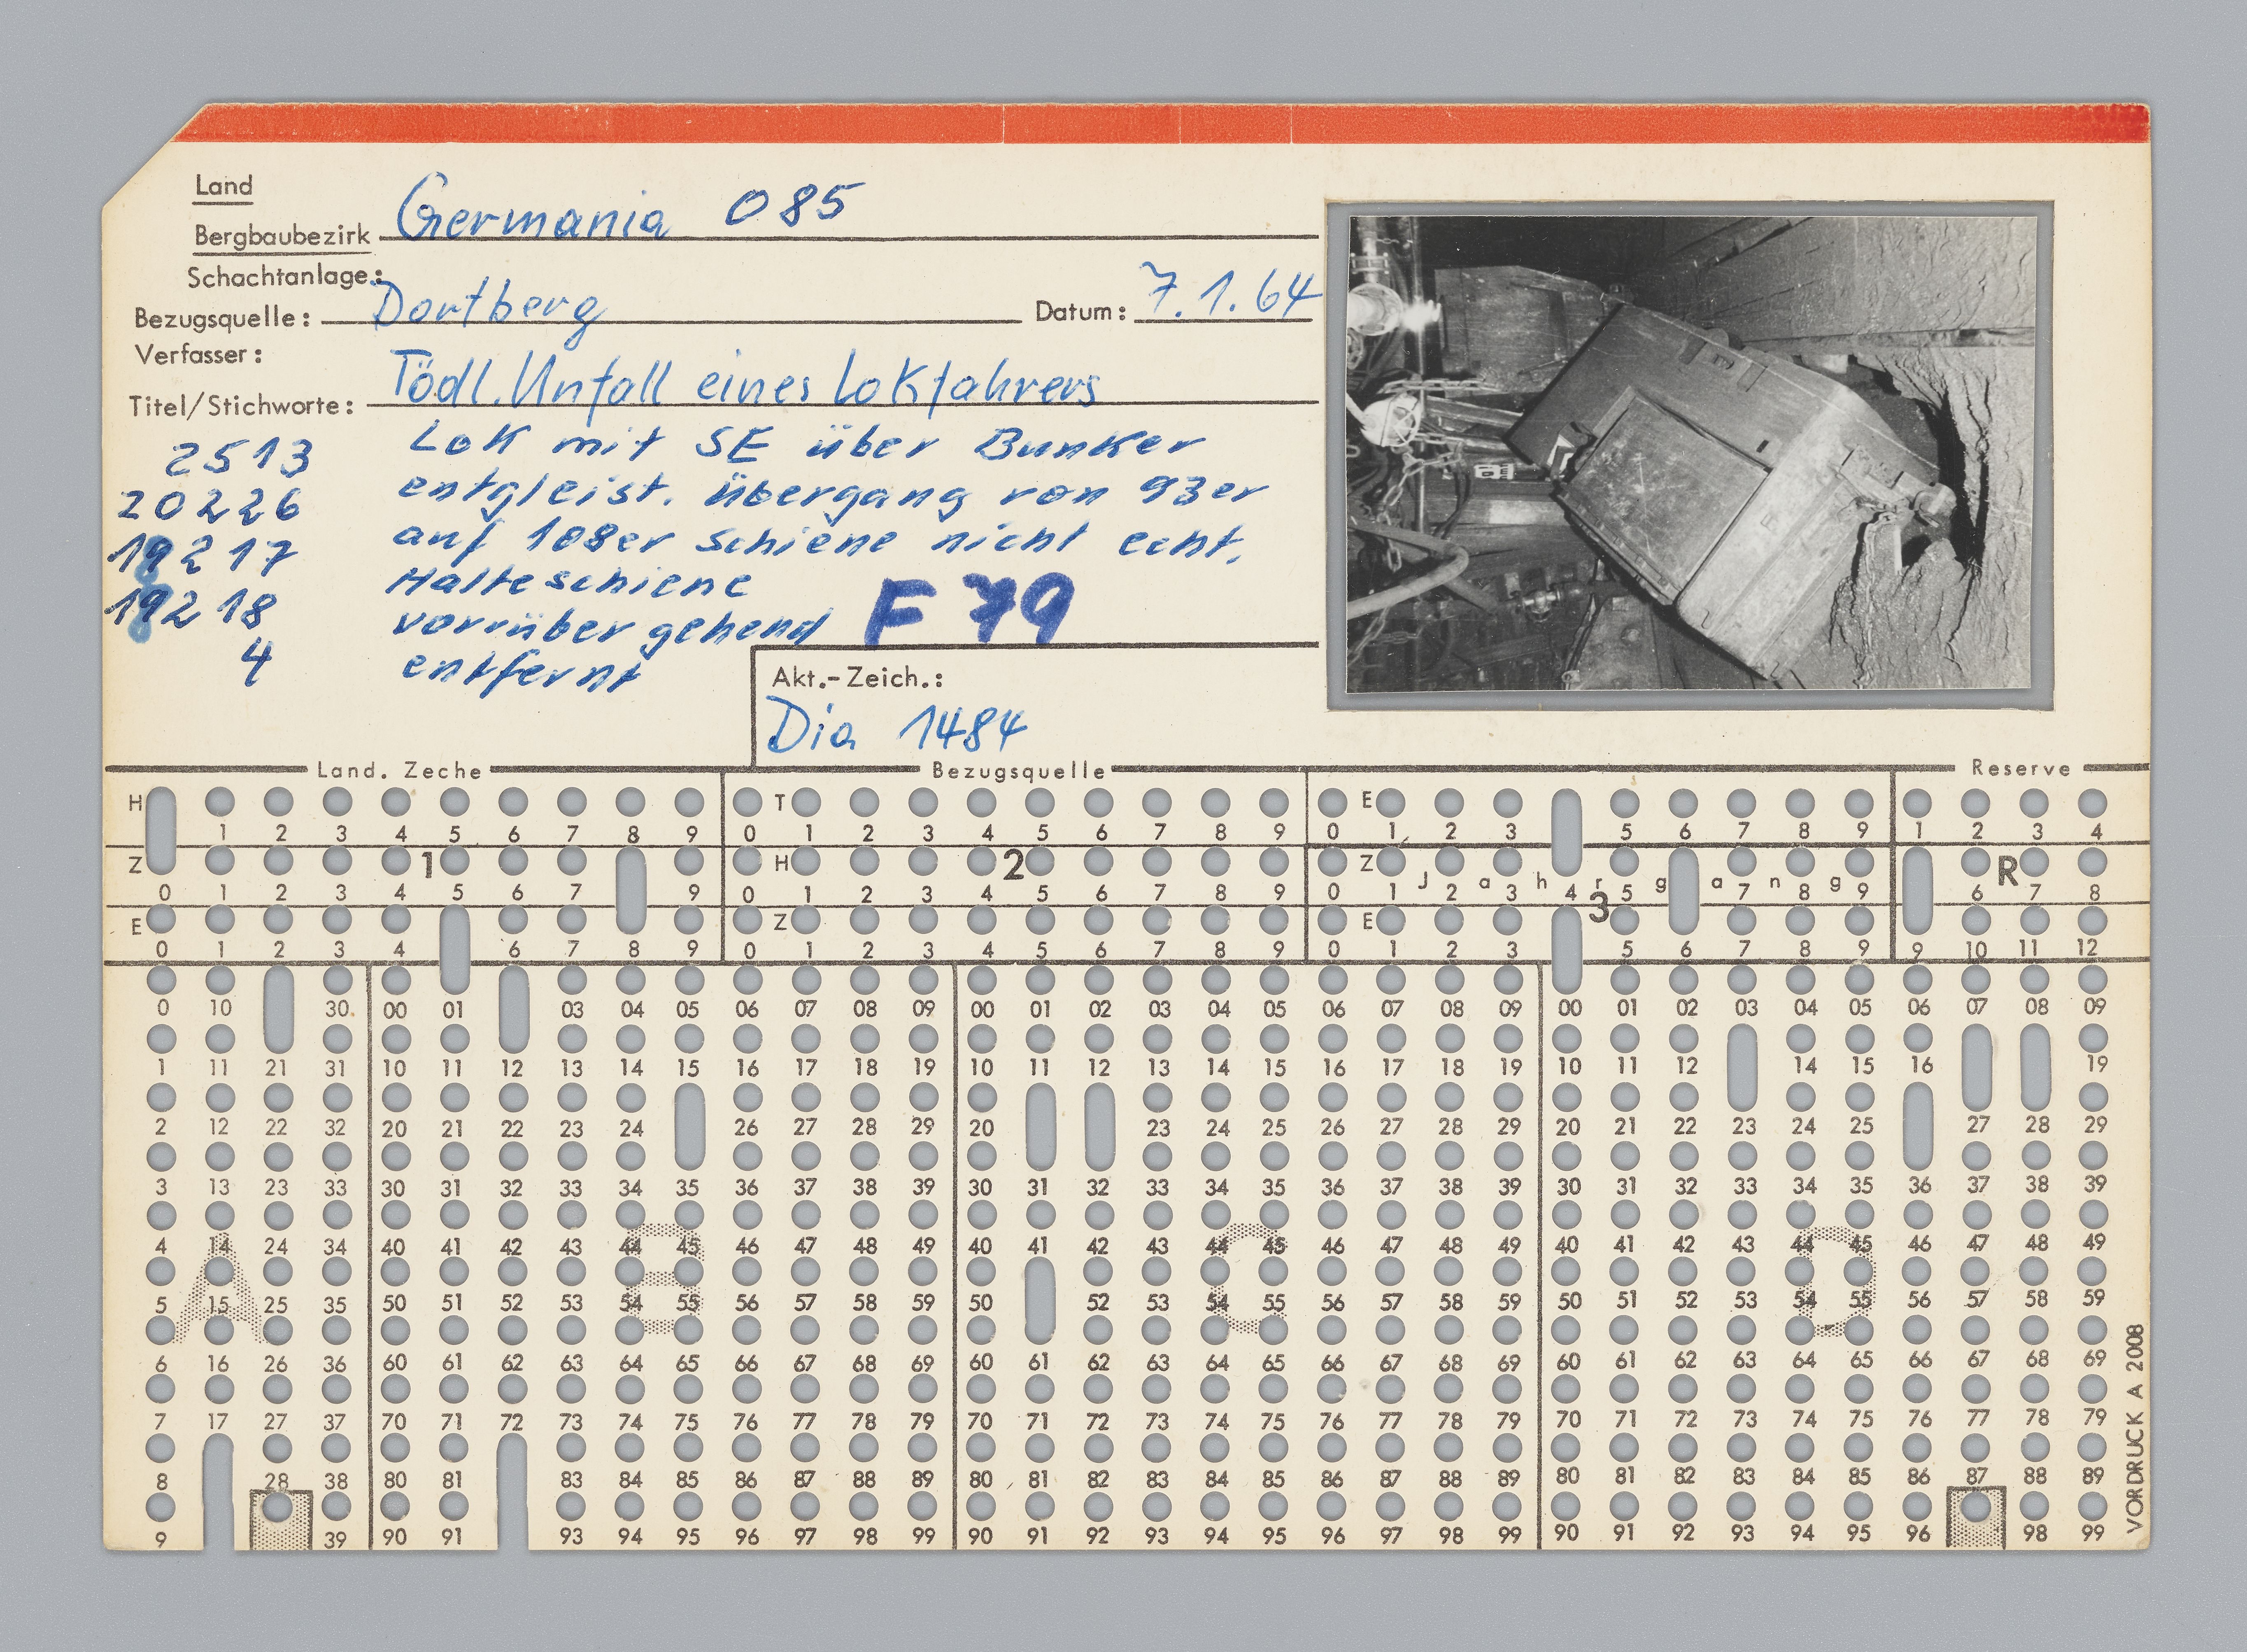 Land
Germania 085
Bergbaubezirk
Schachtanlage:
Dortberg
Bezugsquelle:
Datum: 7.1.64
Verfasser:
Tödl. Unfall eines Lokfahrers
Titel/Stichworte:
2513
20226
19217
19218
4
Lok mit SE über Bunker
entgleist. Übergang von 93er
auf 108er Schiene nicht echt.
Halteschiene
vorrübergehend
entfernt
F 79
Akt.-Zeich.:
Dia 1484
Land. Zeche Bezugsquelle Reserve
H T E
1 2 3 4 5 6 7 8 9 0 1 2 3 4 5 6 7 8 9 0 1 2 3 5 6 7 8 9 1 2 3 4
Z 1 H 2 Z R
Jahrgang
0 1 2 3 4 5 6 7 9 0 1 2 3 4 5 6 7 8 9 0 1 2 3 4 5 7 8 9 6 7 8
E Z E 3
0 1 2 3 4 6 7 8 9 0 1 2 3 4 5 6 7 8 9 0 1 2 3 5 6 7 8 9 9 10 11 12
0 10 30 00 01 03 04 05 06 07 08 09 00 01 02 03 04 05 06 07 08 09 00 01 02 03 04 05 06 07 08 09
1 11 21 31 10 11 12 13 14 15 16 17 18 19 10 11 12 13 14 15 16 17 18 19 10 11 12 14 15 16 19
2 12 22 32 20 21 22 23 24 26 27 28 29 20 23 24 25 26 27 28 29 20 21 22 23 24 25 27 28 29
3 13 23 33 30 31 32 33 34 35 36 37 38 39 30 31 32 33 34 35 36 37 38 39 30 31 32 33 34 35 36 37 38 39
4 14 24 34 40 41 42 43 44 45 46 47 48 49 40 41 42 43 44 45 46 47 48 49 40 41 42 43 44 45 46 47 48 49
A B C D
5 15 25 35 50 51 52 53 54 55 56 57 58 59 50 52 53 54 55 56 57 58 59 50 51 52 53 54 55 56 57 58 59
6 16 26 36 60 61 62 63 64 65 66 67 68 69 60 61 62 63 64 65 66 67 68 69 60 61 62 63 64 65 66 67 68 69
7 17 27 37 70 71 72 73 74 75 76 77 78 79 70 71 72 73 74 75 76 77 78 79 70 71 72 73 74 75 76 77 78 79
8 28 38 80 81 83 84 85 86 87 88 89 80 81 82 83 84 85 86 87 88 89 80 81 82 83 84 85 86 87 88 89
9 39 90 91 93 94 95 96 97 98 99 90 91 92 93 94 95 96 97 98 99 90 91 92 93 94 95 96 98 99
VORDRUCK A 2008